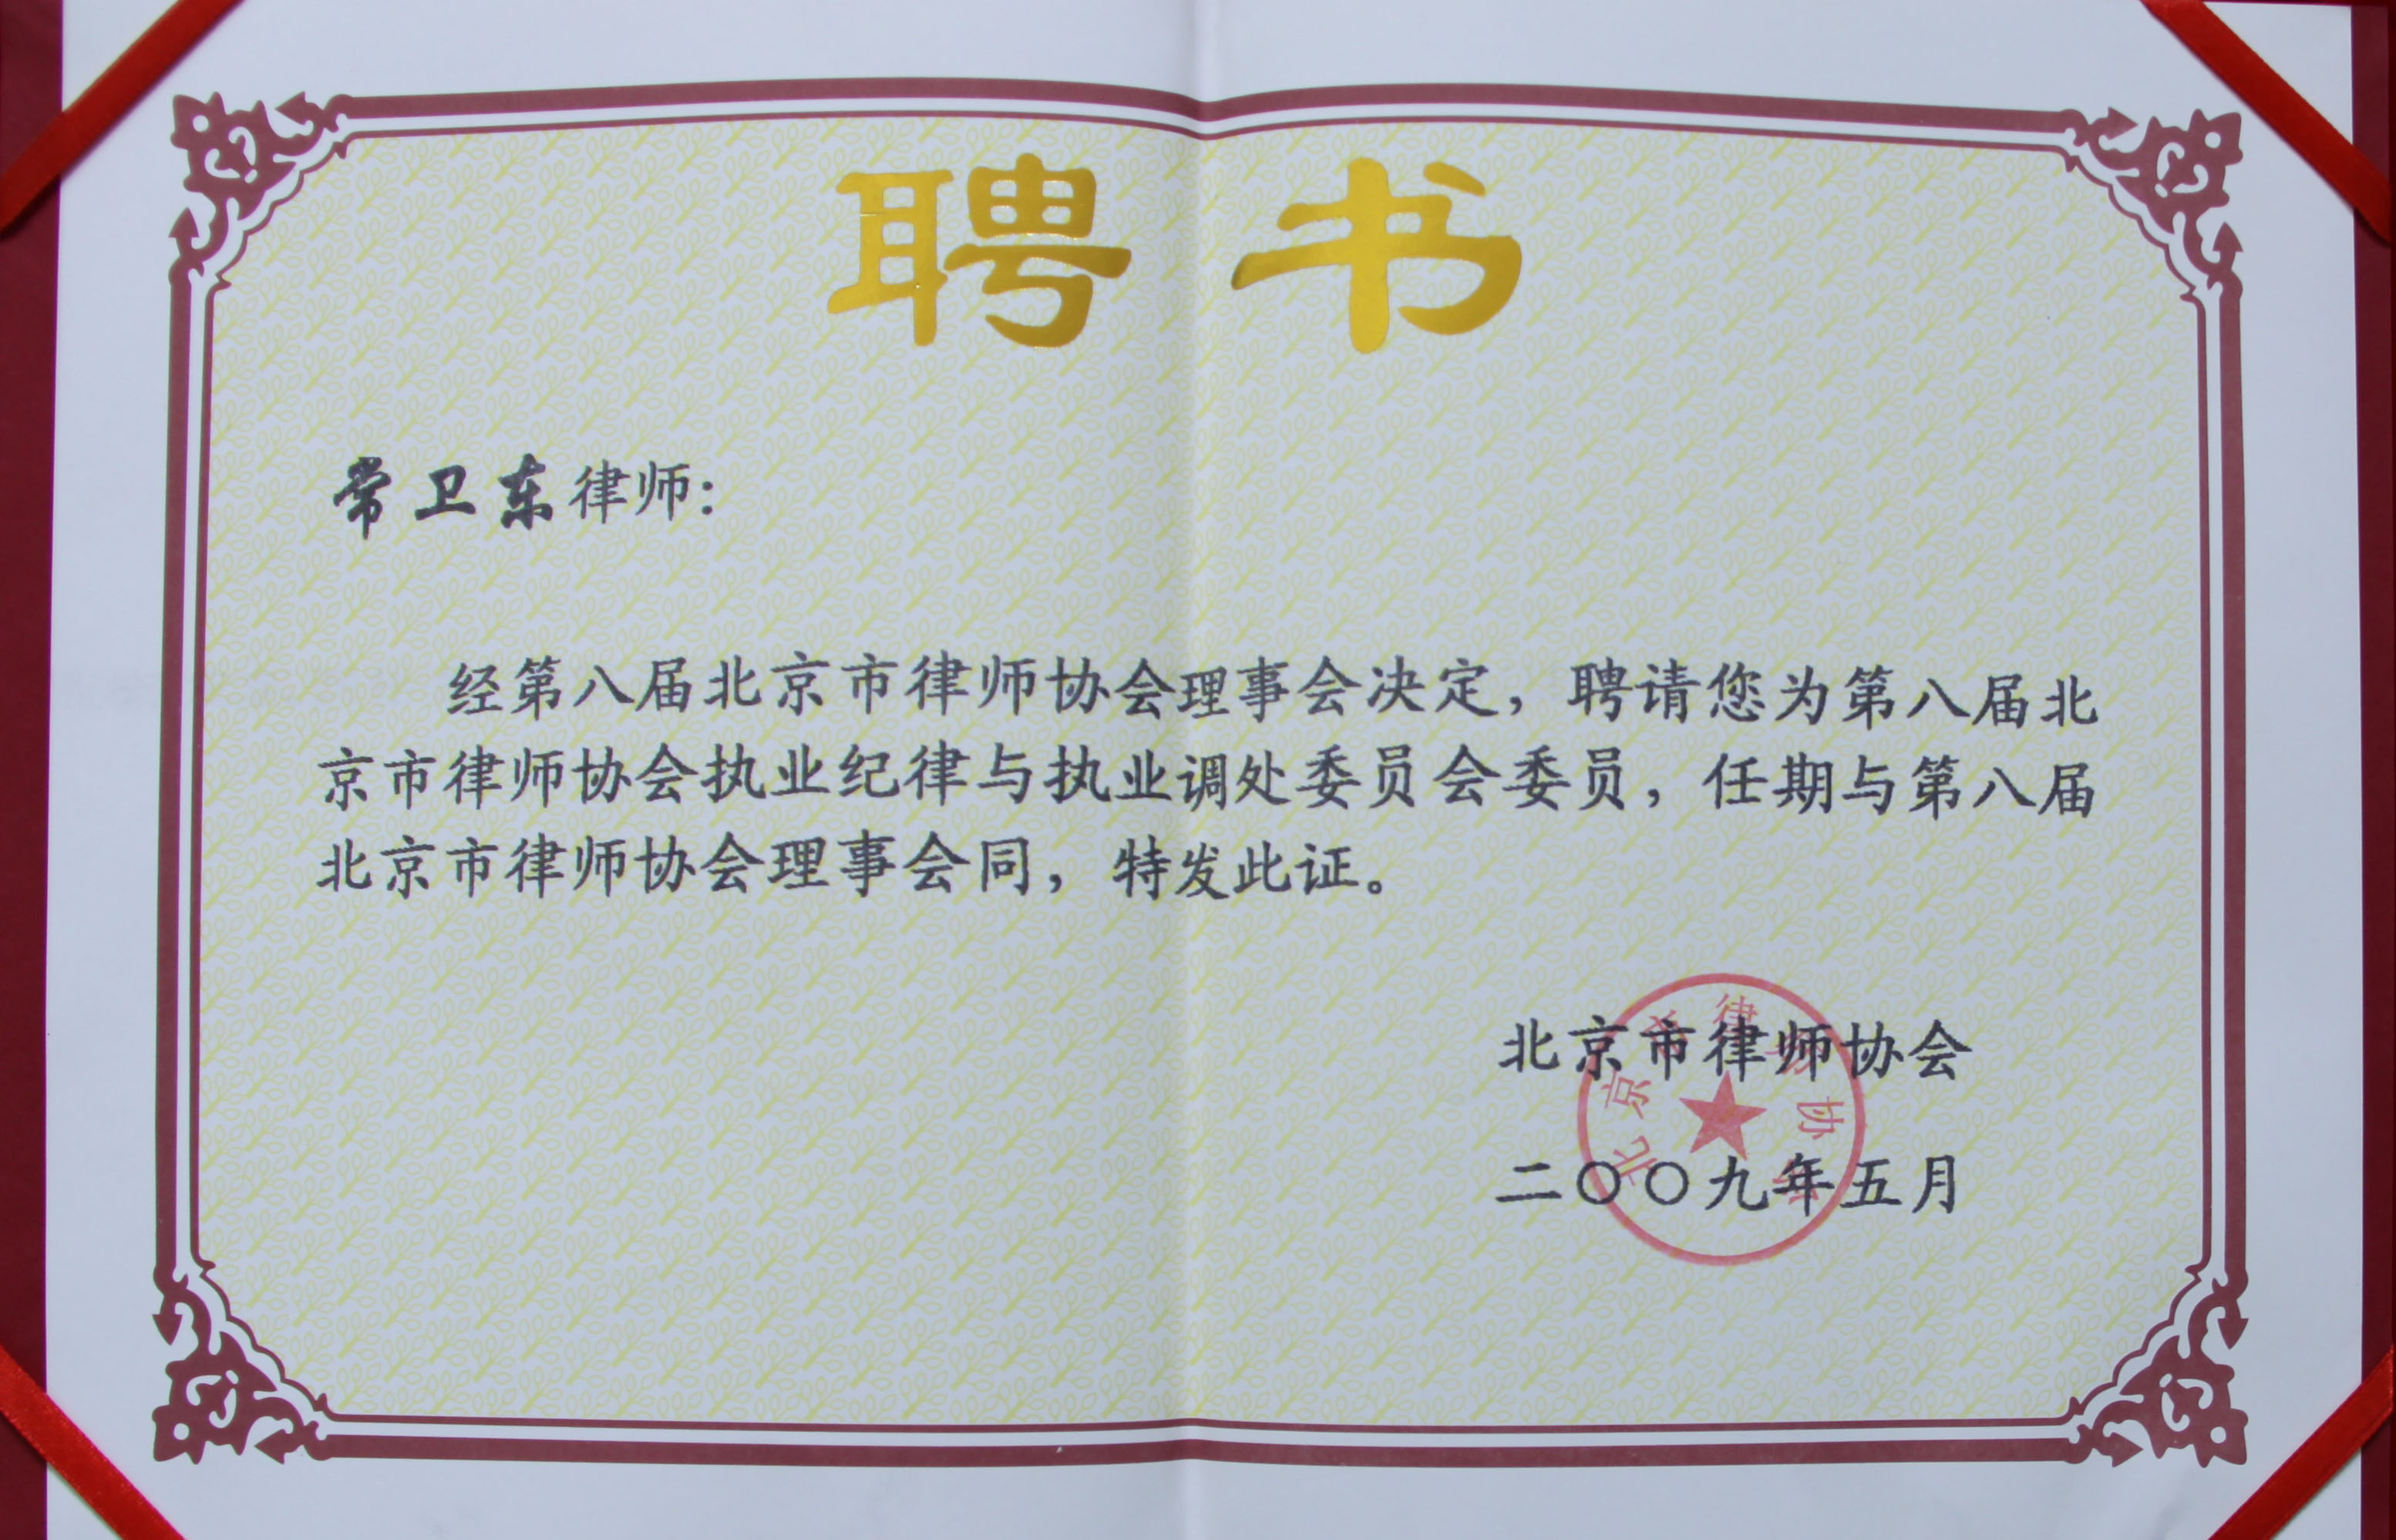 聘书
常卫东律师：
经第八届北京市律师协会理事会决定，聘请您为第八届北
京市律师协会执业纪律与执业调处委员会委员，任期与第八届
北京市律师协会理事会同，特发此证。
北京市律师协会
二〇〇九年五月
北京市律师协会